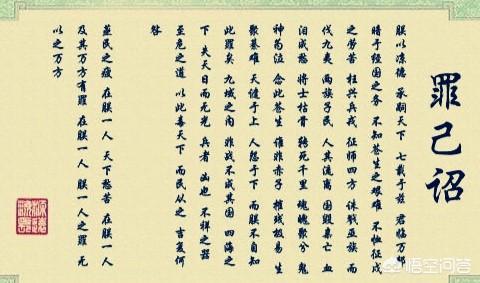 罪己诏
朕以凉德 承嗣天下 七载于兹 君临万邦
暗于经国之务 不知苍生之艰难 不恤征戍
之劳苦 枉兴兵戎 征师四方 诛戮亚族 而
伐九夷 两族子民 人其流离 国毁巢亡 血
泪成愁 将士枯骨 转死千里 魂魄兮 鬼
神为泣 念此苍生 谁非赤子 摧残极易 生
聚綦难 天谴于上 人怨于下 而朕不自知
此罪矣 九域之内 非战不成其国 四海之
下 失天日而无光 兵者 凶也 不祥之器
至危之道 以此毒天下 而民从之 吉复何
咎
蒸民之疲 在朕一人 天下愁苦 在朕一人
及其万方有罪 在朕一人 朕一人之罪 无
以之万方
悟空问答